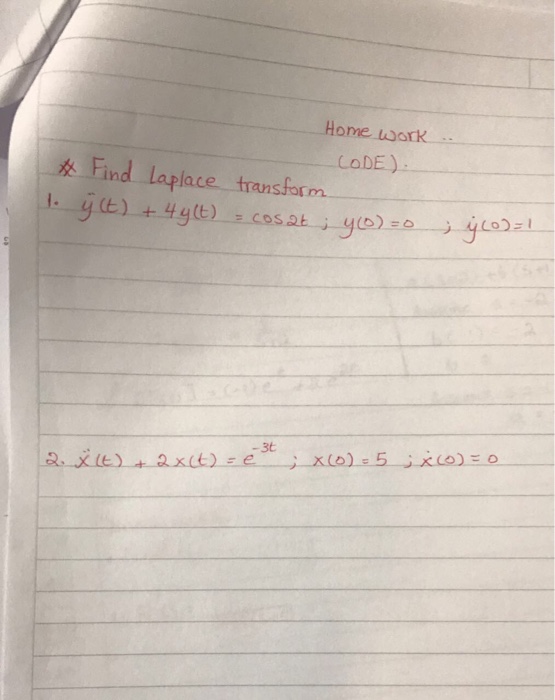 Home work ..
(ODE).
* Find laplace transform
1. ÿ(t) + 4y(t) = cos2t ; y(0)=0 ; ẏ(0)=1
2. ẍ(t) + 2x(t) = e^-3t ; x(0)=5 ; ẋ(0)=0